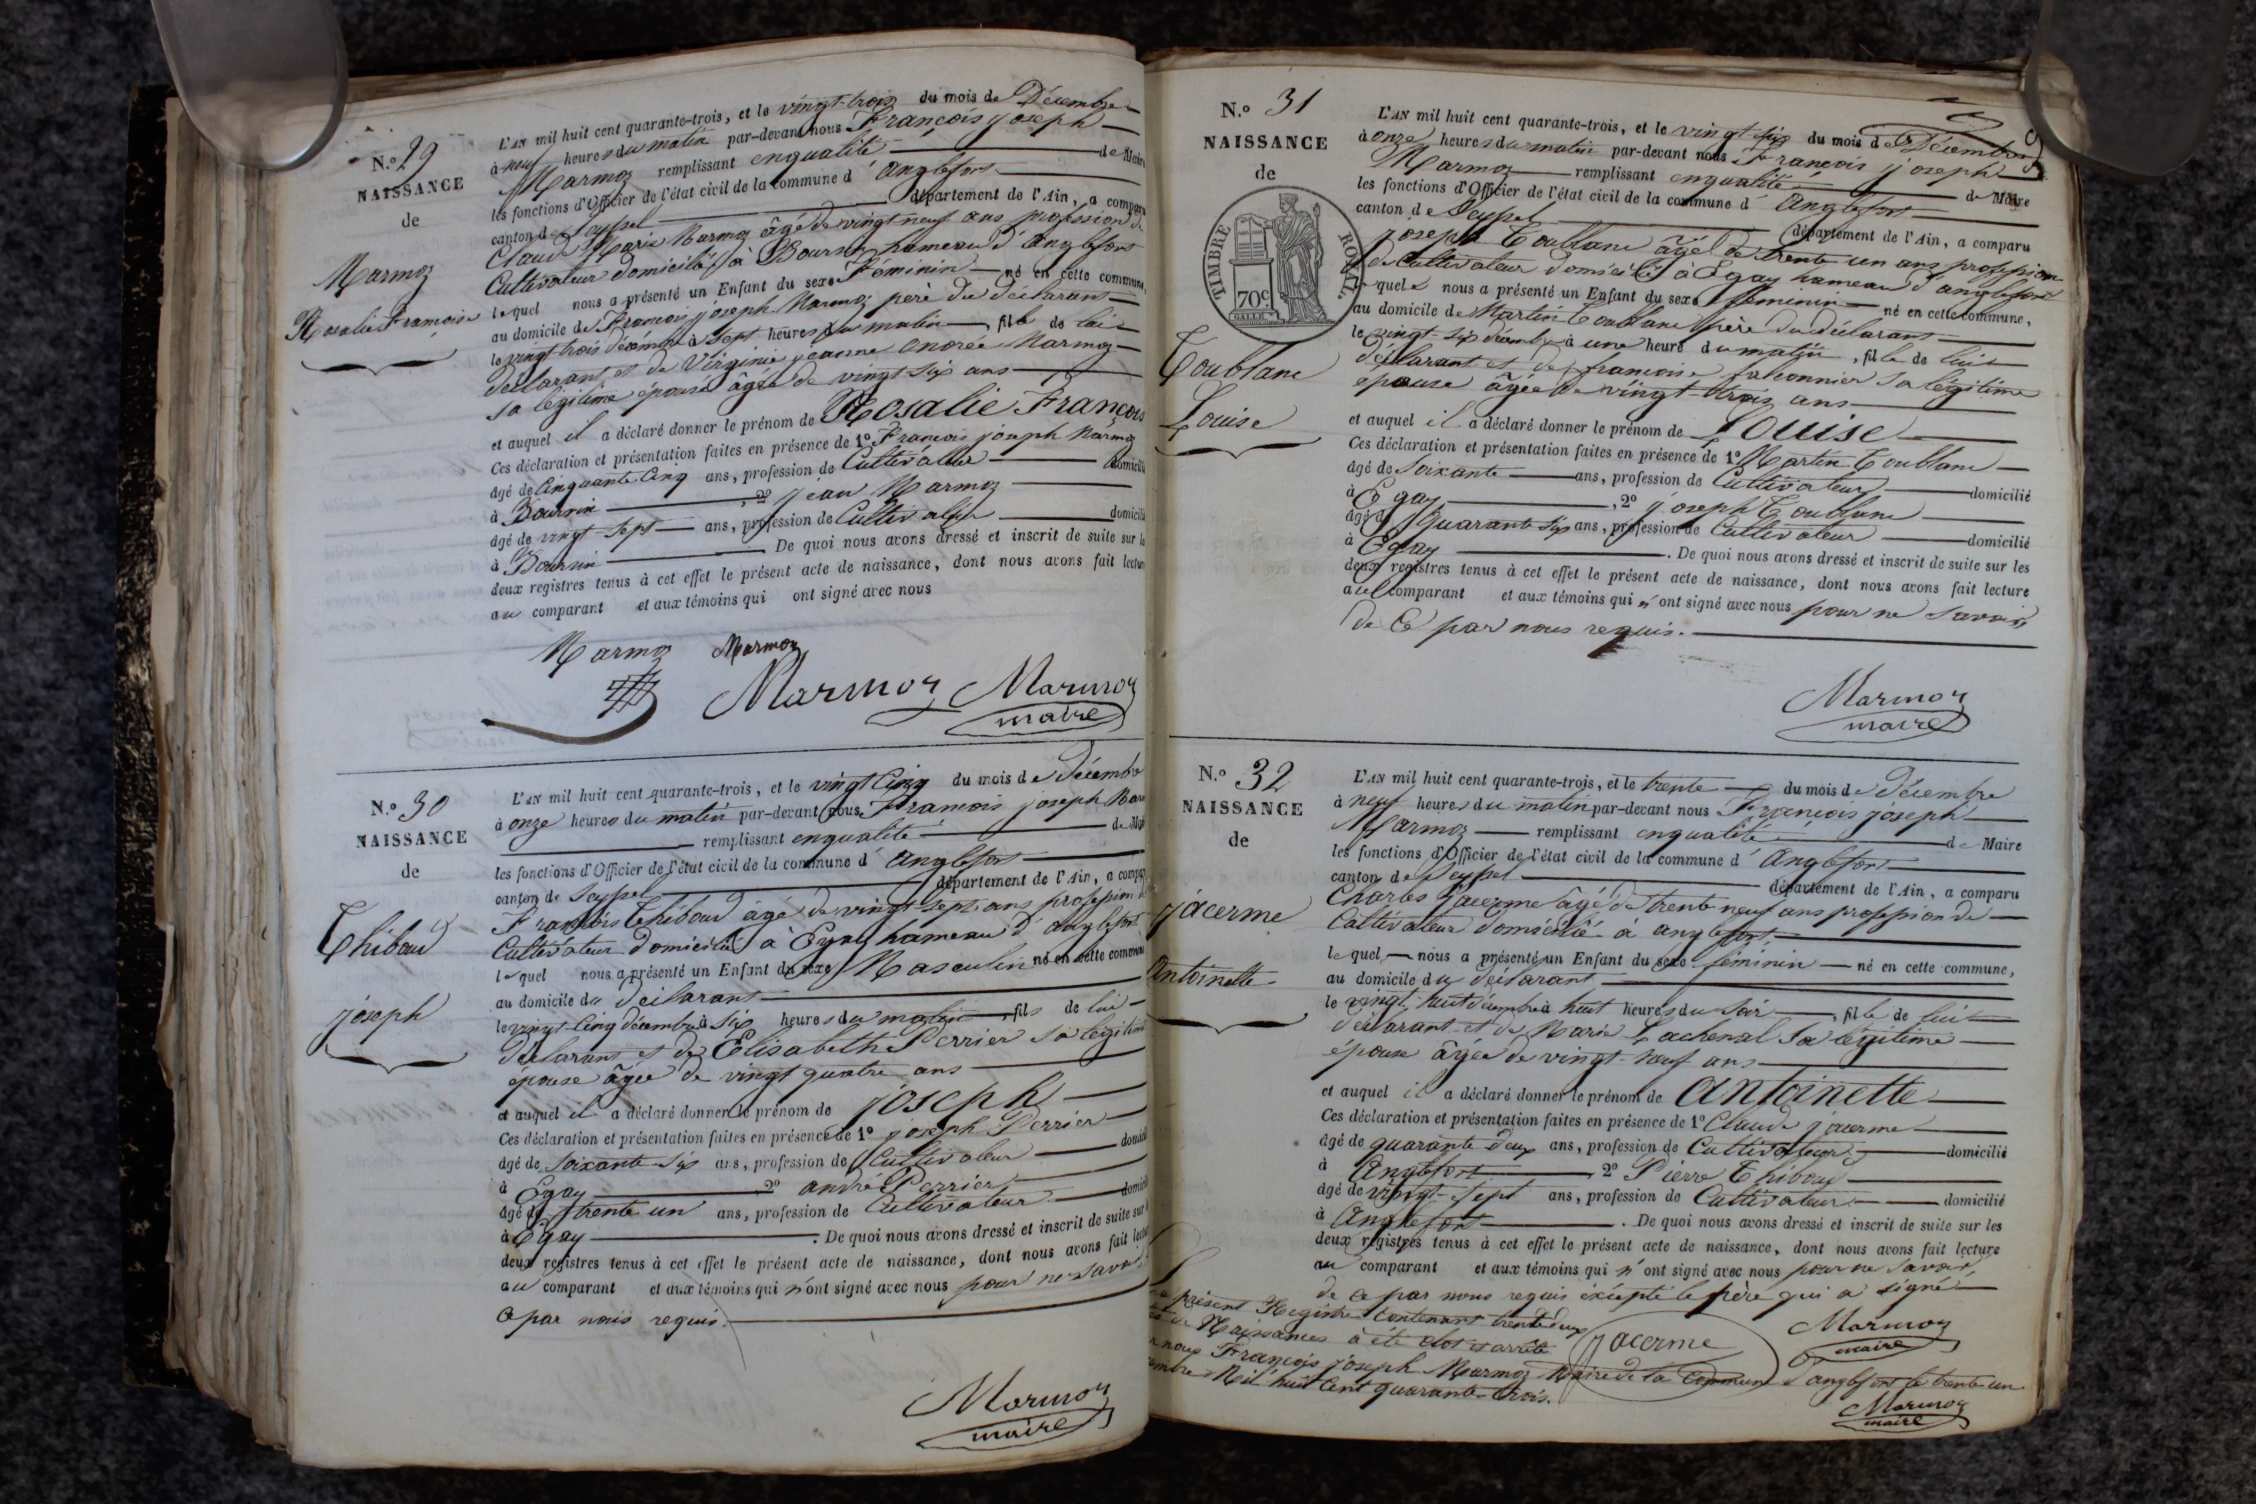 N.º 29
NAISSANCE
de
Marmoz
Rosalie Françoise
L'AN mil huit cent quarante-trois, et le vingt-trois du mois de Décembre
à neuf heures du matin par-devant nous François joseph
Marmoz remplissant enqualité de Maire
les fonctions d'Officier de l'état civil de la commune d' Anglefort
canton de Seyssel département de l'Ain, a comparu
Claude Marie Marmoz âgé de vingt neuf ans profession de
Cultivateur domicilié à Boursin hameau d' Anglefort
lequel nous a présenté un Enfant du sexe Féminin né en cette commune,
au domicile de François joseph Marmoz père du déclarant
le vingt trois décembre à sept heures du matin, fille de lui
déclarant et de Virginie jeanne Andrée Marmoz
sa légitime épouse âgée de vingt six ans
et auquel il a déclaré donner le prénom de Rosalie François
Ces déclaration et présentation faites en présence de 1º François joseph Marmoz
âgé de Cinquante Cinq ans, profession de Cultivateur domicilié
à Boursin, 2º jean Marmoz
âgé de vingt-sept ans, profession de Cultivateur domicilié
à Boursin De quoi nous avons dressé et inscrit de suite sur les
deux registres tenus à cet effet le présent acte de naissance, dont nous avons fait lecture
au comparant et aux témoins qui ont signé avec nous
Marmoz Marmoz
Marmoz Marmoz
maire
N.º 30
NAISSANCE
de
Thiboud
joseph
L'AN mil huit cent quarante-trois, et le vingt Cinq du mois de Décembre
à onze heures du matin par-devant nous François joseph Mar
remplissant enqualité de Maire
les fonctions d'Officier de l'état civil de la commune d' Anglefort
canton de Seyssel département de l'Ain, a comparu
François Thiboud âgé de vingt-sept ans profession de
Cultivateur domicilié à Egay hameau d' anglefort
lequel nous a présenté un Enfant du sexe Masculin né en cette commune
au domicile du déclarant
le vingt-Cinq décembre à six heures du matin, fils de lui
déclarant et de Elisabeth Perrier sa légitime
épouse âgée de vingt quatre ans
et auquel il a déclaré donner le prénom de joseph
Ces déclaration et présentation faites en présence de 1º joseph Perrier
âgé de soixante-six ans, profession de Cultivateur domicilié
à Egay 2º andré Perrier
âgé de trente un ans, profession de Cultivateur domicilié
à Egay. De quoi nous avons dressé et inscrit de suite sur les
deux registres tenus à cet effet le présent acte de naissance, dont nous avons fait lecture
au comparant et aux témoins qui n'ont signé avec nous pour ne savoir
Ce par nous requis.
Marmoz
maire
N.º 31
NAISSANCE
de
TIMBRE ROYAL.
70c
Toublanc
Louise
L'AN mil huit cent quarante-trois, et le vingt-six du mois de Décembre
à onze heures du matin par-devant nous François joseph
Marmoz remplissant enqualité de Maire
les fonctions d'Officier de l'état civil de la commune d' Anglefort
canton de Seyssel département de l'Ain, a comparu
joseph Toublanc âgé de trente un ans profession
de Cultivateur domicilié à Egay hameau d'anglefort
lequel nous a présenté un Enfant du sexe féminin né en cette commune,
au domicile de Martin Toublanc père du déclarant
le vingt six décembre à une heure du matin, fille de lui
déclarant et de françoise falconnier sa légitime
épouse âgée de vingt-trois ans
et auquel il a déclaré donner le prénom de Louise
Ces déclaration et présentation faites en présence de 1º Martin Toublanc
âgé de soixante ans, profession de Cultivateur domicilié
à Egay, 2º joseph Toublanc
âgé de quarante six ans, profession de Cultivateur domicilié
à Egay. De quoi nous avons dressé et inscrit de suite sur les
deux registres tenus à cet effet le présent acte de naissance, dont nous avons fait lecture
au comparant et aux témoins qui n'ont signé avec nous pour ne savoir
de Ce par nous requis.
Marmoz
maire
N.º 32
NAISSANCE
de
jacerme
Antoinette
L'AN mil huit cent quarante-trois, et le trente du mois de Décembre
à neuf heures du matin par-devant nous François joseph
Marmoz remplissant enqualité de Maire
les fonctions d'Officier de l'état civil de la commune d' Anglefort
canton de Seyssel département de l'Ain, a comparu
Charles jacerme âgé de trente neuf ans profession de
Cultivateur domicilié à anglefort
lequel nous a présenté un Enfant du sexe féminin né en cette commune,
au domicile du déclarant
le vingt-huit décembre à huit heures du soir, fille de lui
déclarant et de Marie Lachenal sa légitime
épouse âgée de vingt-neuf ans
et auquel il a déclaré donner le prénom de Antoinette
Ces déclaration et présentation faites en présence de 1º Claude jacerme
âgé de quarante deux ans, profession de Cultivateur domicilié
à Anglefort 2º Pierre Thiboud
âgé de vingt-sept ans, profession de Cultivateur domicilié
à Anglefort. De quoi nous avons dressé et inscrit de suite sur les
deux registres tenus à cet effet le présent acte de naissance, dont nous avons fait lecture
au comparant et aux témoins qui n'ont signé avec nous pour ne savoir,
de ce par nous requis excepté le père qui a signé
jacerme Marmoz
maire
présent Registre Contenant trente deux
Naissances à été clos et arrêté
nous François joseph Marmoz Maire de la Commune d'anglefort le trente un
Mil huit Cent quarante-trois.
Marmoz
maire